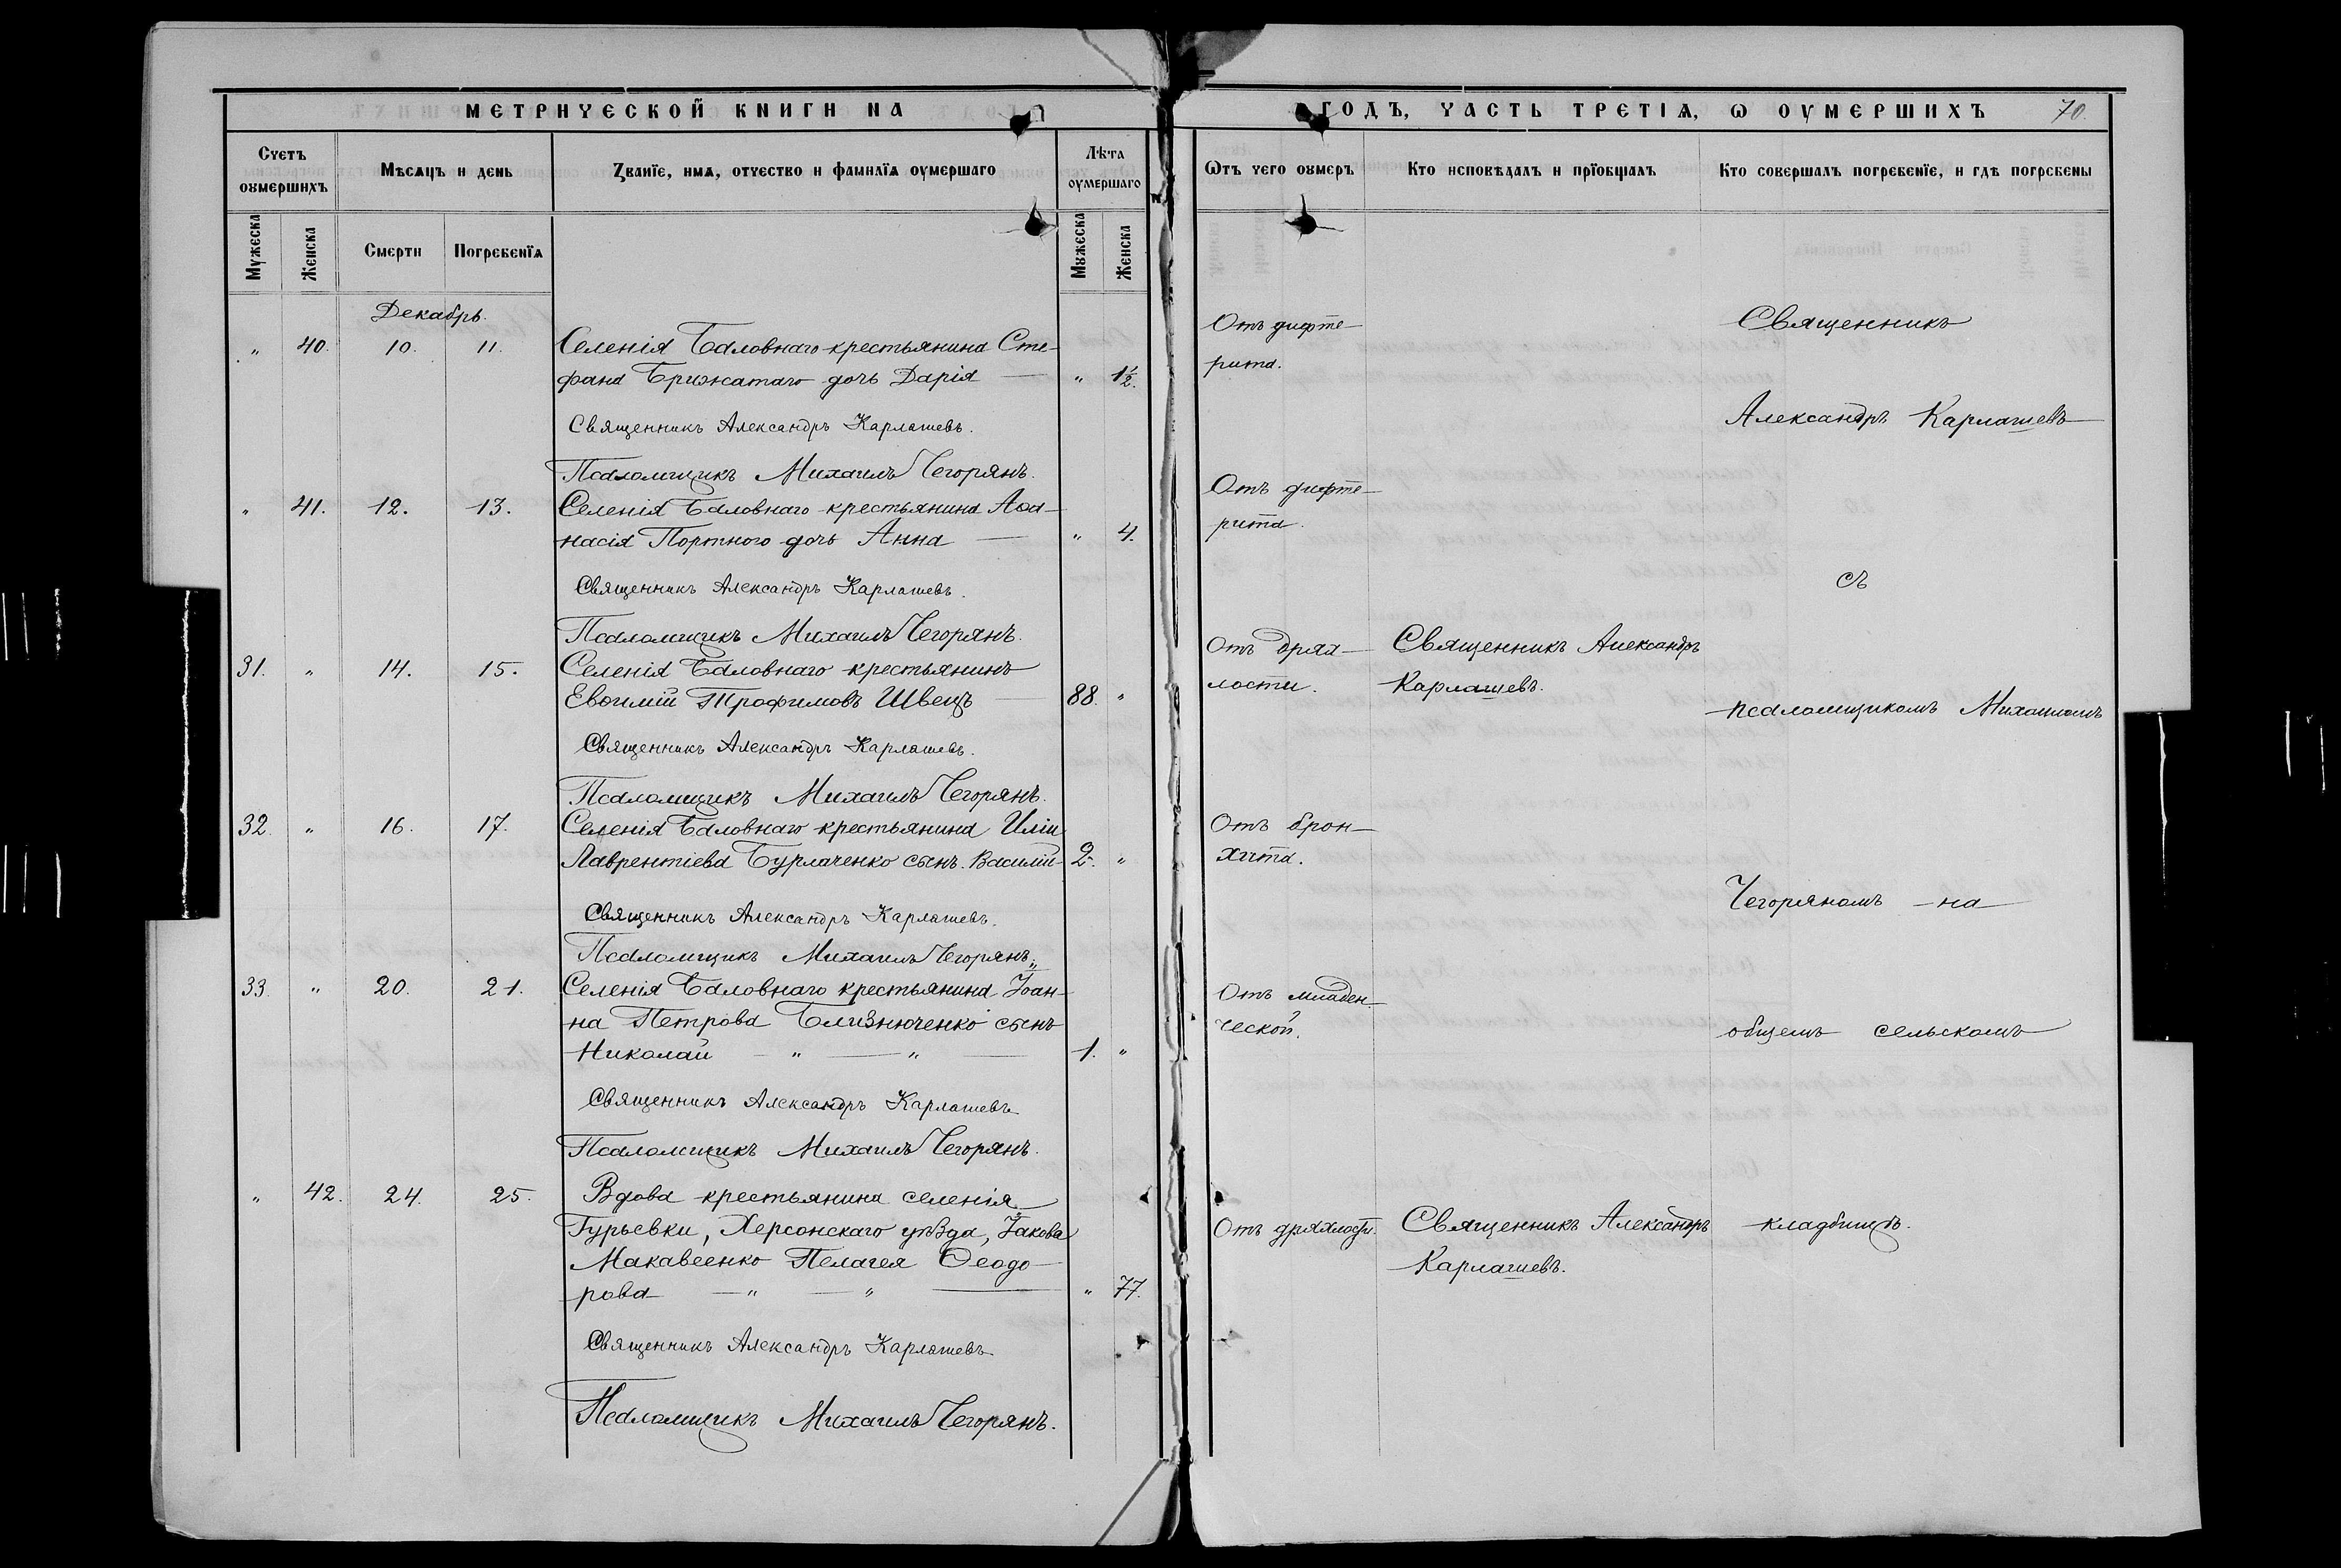 МЕТРИЧЕСКОЙ КНИГИ НА
Счетъ оумершихъ
Мѣсяцъ и день
Званїе, имя, отчество и фамилїя оумершаго
Лѣта оумершаго
Мужеска
Женска
Смерти
Погребенїя
Мужеска
Женска
Декабрь.
„ 40. 10. 11. Селенія Баловнаго крестьянина Сте-
фана Брижатаго дочь Дарія — „ 1½.
Священникъ Александръ Карлашевъ.
Псаломщикъ Михаилъ Чегорянъ.
„ 41. 12. 13. Селенія Баловнаго крестьянина Аѳа-
насія Портного дочь Анна — „ 4.
Священникъ Александръ Карлашевъ.
Псаломщикъ Михаилъ Чегорянъ.
31. „ 14. 15. Селенія Баловнаго крестьянинъ
Евѳимій Трофимовъ Швецъ — 88. „
Священникъ Александръ Карлашевъ.
Псаломщикъ Михаилъ Чегорянъ.
32. „ 16. 17. Селенія Баловнаго крестьянина Иліи
Лаврентіева Бурлаченко сынъ Василій 2. „
Священникъ Александръ Карлашевъ.
Псаломщикъ Михаилъ Чегорянъ„
33. „ 20. 21. Селенія Баловнаго крестьянина Іоан-
на Петрова Близнюченко сынъ
Николай — „ — „ — 1. „
Священникъ Александръ Карлашевъ
Псаломщикъ Михаилъ Чегорянъ.
„ 42. 24. 25. Вдова крестьянина селенія
Гурьевки, Херсонскаго уѣзда, Іакова
Макавеенко Пелагея Ѳеодо-
рова — „ — „ — „ 77.
Священникъ Александръ Карлашевъ
Псаломщикъ Михаилъ Чегорянъ.
ГОДЪ, ЧАСТЬ ТРЕТІЯ, Ѡ ОУМЕРШИХЪ 70.
Ѿтъ чего оумеръ
Кто исповѣдалъ и прїобщалъ
Кто совершалъ погребенїе, и гдѣ погребены
Отъ дифте-
рита.
Отъ дифте-
рита.
Отъ дрях-
лости.
Священникъ Александръ
Карлашевъ.
Отъ брон-
хита.
Отъ младен-
ческой.
Отъ дряхлости.
Священникъ Александръ
Карлашевъ.
Священникъ
Александръ Карлашевъ
съ
псаломщикомъ Михаиломъ
Чегоряномъ на
общемъ сельскомъ
кладбищѣ.